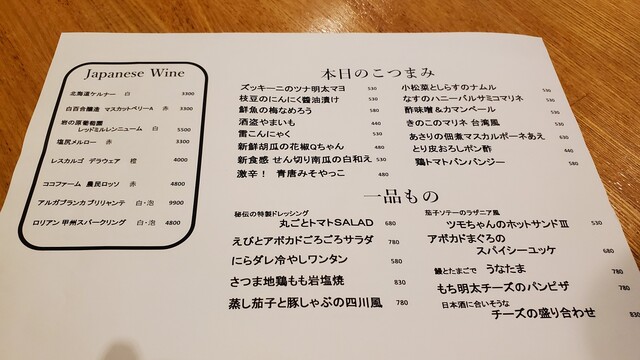 Japanese Wine
北海道ケルナー 白 3300
白百合醸造 マスカットベリーA 赤 3300
岩の原葡萄園
レッドミルレンニューム 白 5500
塩尻メルロー 赤 3300
レスカルゴ デラウェア 橙 4000
ココファーム 農民ロッソ 赤 4800
アルガブランカ ブリリャンテ 白・泡 9900
ロリアン 甲州スパークリング 白・泡 4800
本日のこつまみ
ズッキーニのツナ明太マヨ 530
枝豆のにんにく醬油漬け 530
鮮魚の梅なめろう 580
酒盗やまいも 440
雷こんにゃく 530
新鮮胡瓜の花椒Qちゃん 480
新食感 せん切り南瓜の白和え 530
激辛! 青唐みそやっこ 480
小松菜としらすのナムル 530
なすのハニーバルサミコマリネ 530
酢味噌&カマンベール 530
きのこのマリネ 台湾風 530
あさりの佃煮マスカルポーネあえ 630
とり皮おろしポン酢 440
鶏トマトバンバンジー 580
一品もの
秘伝の特製ドレッシング
丸ごとトマトSALAD 680
えびとアボカドごろごろサラダ 780
にらダレ冷やしワンタン 580
さつま地鶏もも岩塩焼 830
蒸し茄子と豚しゃぶの四川風 780
茄子ソテーのラザニア風
ツモちゃんのホットサンドⅢ 530
アボカドまぐろの
スパイシーユッケ 680
鰻とたまごで うなたま 780
もち明太チーズのパンピザ 780
日本酒に合いそうな
チーズの盛り合わせ 830